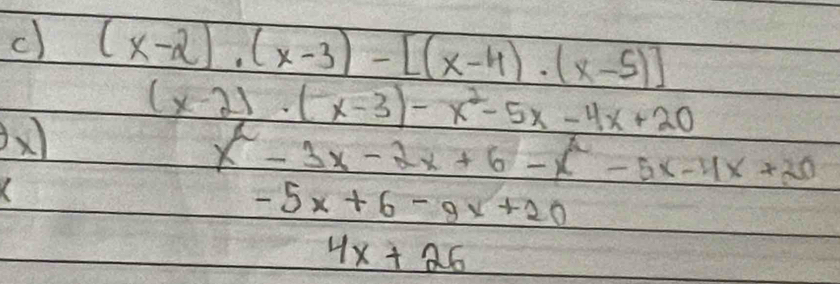 c) (x-2).(x-3) - [(x-4).(x-5)]
(x-2).(x-3) - x²-5x-4x+20
x) x² - 3x - 2x + 6 - x² - 5x-4x +20
-5x + 6 - 9x +20
4x + 26